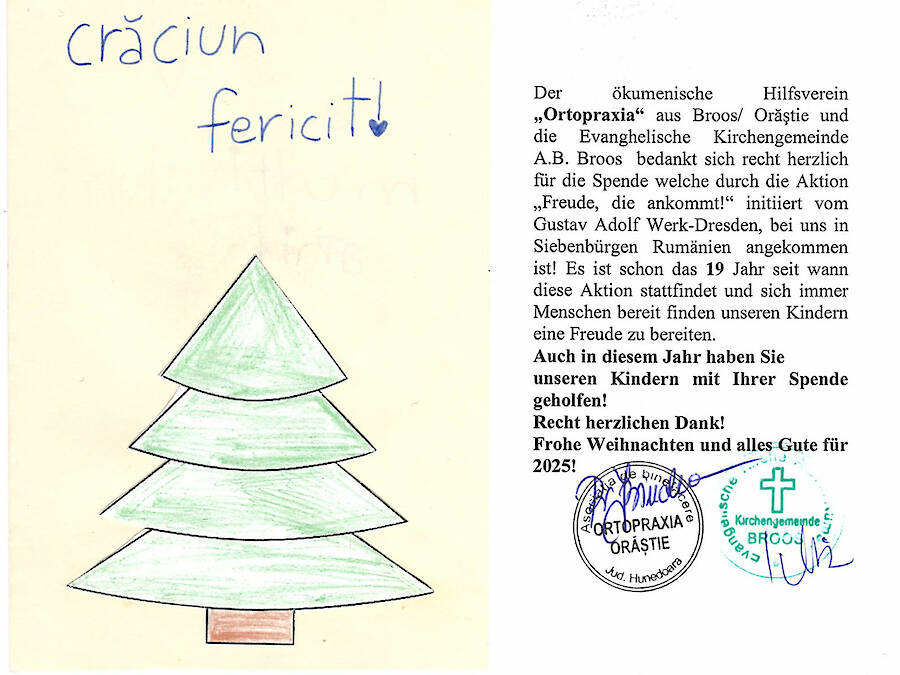 Crăciun
fericit!
Der ökumenische Hilfsverein
„Ortopraxia“ aus Broos/ Orăştie und
die Evanghelische Kirchengemeinde
A.B. Broos bedankt sich recht herzlich
für die Spende welche durch die Aktion
„Freude, die ankommt!“ initiiert vom
Gustav Adolf Werk-Dresden, bei uns in
Siebenbürgen Rumänien angekommen
ist! Es ist schon das 19 Jahr seit wann
diese Aktion stattfindet und sich immer
Menschen bereit finden unseren Kindern
eine Freude zu bereiten.
Auch in diesem Jahr haben Sie
unseren Kindern mit Ihrer Spende
geholfen!
Recht herzlichen Dank!
Frohe Weihnachten und alles Gute für
2025!
Asociaţia de binefacere
ORTOPRAXIA
ORĂŞTIE
Jud. Hunedoara
Evangelische Kirche A.B.
Kirchengemeinde
BROOS